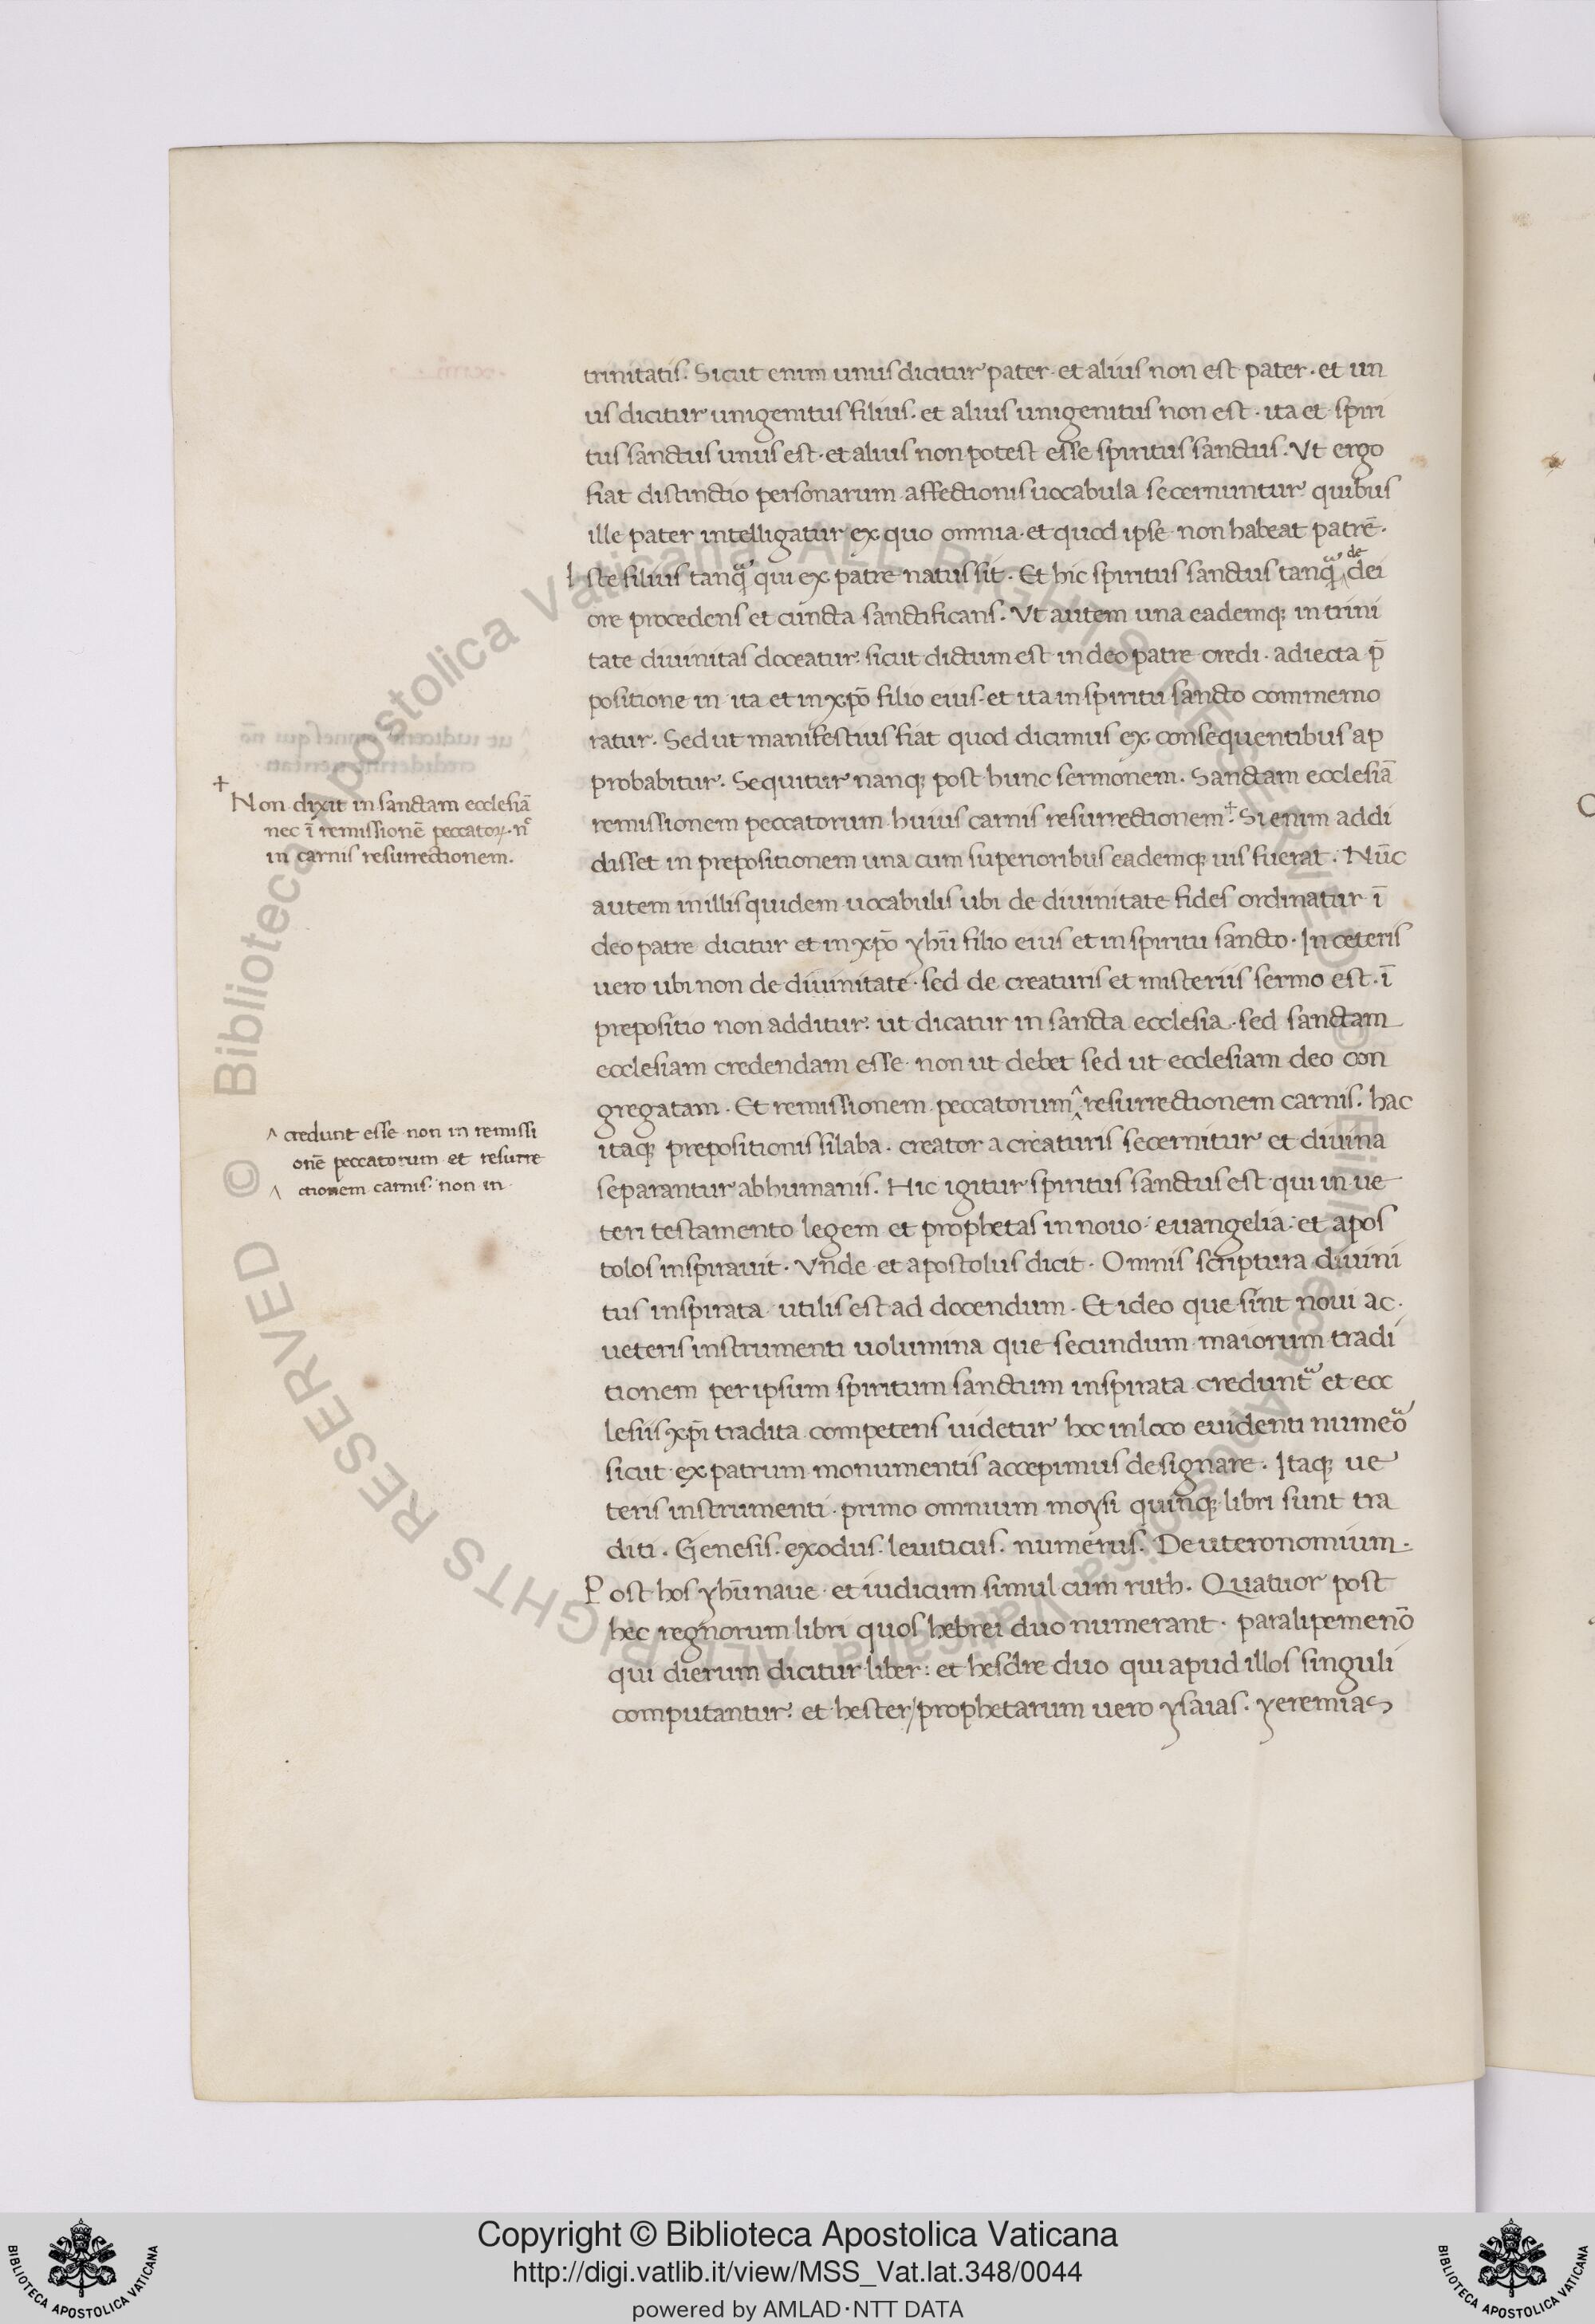 trinitatis. Sicut enim unus dicitur pater· et alius non est pater· et un
us dicitur unigenitus filius. et alius unigenitus non est· ita et spiri
tus sanctus unus est· et alius non potest esse spiritus sanctus. Vt ergo
fiat distinctio personarum affectionis uocabula secernuntur quibus
ille pater intelligatur ex quo omnia· et quod ipse non habeat patrē·
Iste filius tanqᷓ qui ex patre natus sit· Et hic spiritus sanctus tanqᷓ ^de dei
ore procedens et cuncta sanctificans. Vt autem una eademq; in trini
tate diuinitas doceatur· sicut dictum est in deo patre credi· adiecta p̄
positione in· ita et in xp̄o filio eius· et ita in spiritu sancto commemo
ratur· Sed ut manifestius fiat quod dicimus ex consequentibus ap
probabitur. Sequitur nanq; post hunc sermonem. Sanctam ecclesiā
remissionem peccatorum huius carnis resurrectionem+. Si enim addi
disset in prepositionem una cum superioribus eademq; uis fuerat· Nūc
autem in illis quidem uocabulis ubi de diuinitate fides ordinatur ī
deo patre dicitur et in xp̄o yhū filio eius et in spiritu sancto· In ceteris
uero ubi non de diuinitate· sed de creaturis et misteriis sermo est· ī
prepositio non additur: ut dicatur in sancta ecclesia· sed sanctam
ecclesiam credendam esse· non ut debet sed ut ecclesiam deo con
gregatam· Et remissionem peccatorum^ resurrectionem carnis. hac
itaq; prepositionis silaba· creator a creaturis secernitur et diuina
separantur ab humanis. Hic igitur spiritus sanctus est qui in ue
teri testamento legem et prophetas in nouo euangelia· et apos
tolos inspirauit· Vnde et apostolus dicit· Omnis scriptura diuini
tus inspirata utilis est ad docendum· Et ideo que sint noui ac
ueteris instrumenti uolumina que secundum maiorum tradi
tionem per ipsum spiritum sanctum inspirata creduntᷓ et ecc
lesiis xp̄i tradita competens uidetur hoc in loco euidenti numeᷓo
sicut ex patrum monumentis accepimus designare. Itaq; ue
teris instrumenti· primo omnium moysi quinq; libri sunt tra
diti· Genesis· exodus· leuiticus· numerus· Deuteronomium·
Post hos yhū naue· et iudicum simul cum ruth· Quatuor post
hec regnorum libri quos hebrei duo numerant· paralipemenō
qui dierum dicitur liber: et hesdre duo qui apud illos singuli
computantur: et hester/ prophetarum uero ysaias. yeremias
+
Non dixit in sanctam ecclesiā
nec ī remissionē peccatoꝝ· nͨ
in carnis resurrectionem.
^ credunt esse non in remissi
onē peccatorum et resurre
^ ctionem carnis· non in
© Biblioteca Apostolica Vaticana ALL RIGHTS RESERVED © Biblioteca Apostolica Vaticana ALL RIGHTS RESERVED
Copyright © Biblioteca Apostolica Vaticana
http://digi.vatlib.it/view/MSS_Vat.lat.348/0044
powered by AMLAD·NTT DATA
BIBLIOTECA APOSTOLICA VATICANA
BIBLIOTECA APOSTOLICA VATICANA